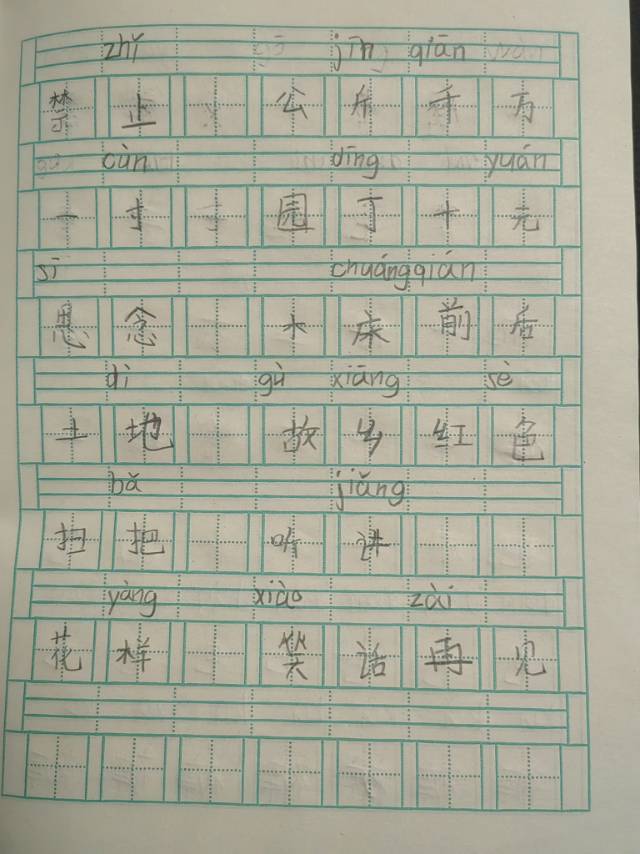 zhǐ jīn qiān
禁止 公斤千万
cùn dīng yuán
一寸 园丁十元
sī chuáng qián
思念 木床前后
dì gù xiāng sè
土地 故乡红色
bǎ jiǎng
扫把 听讲
yàng xiào zài
花样 笑话再见